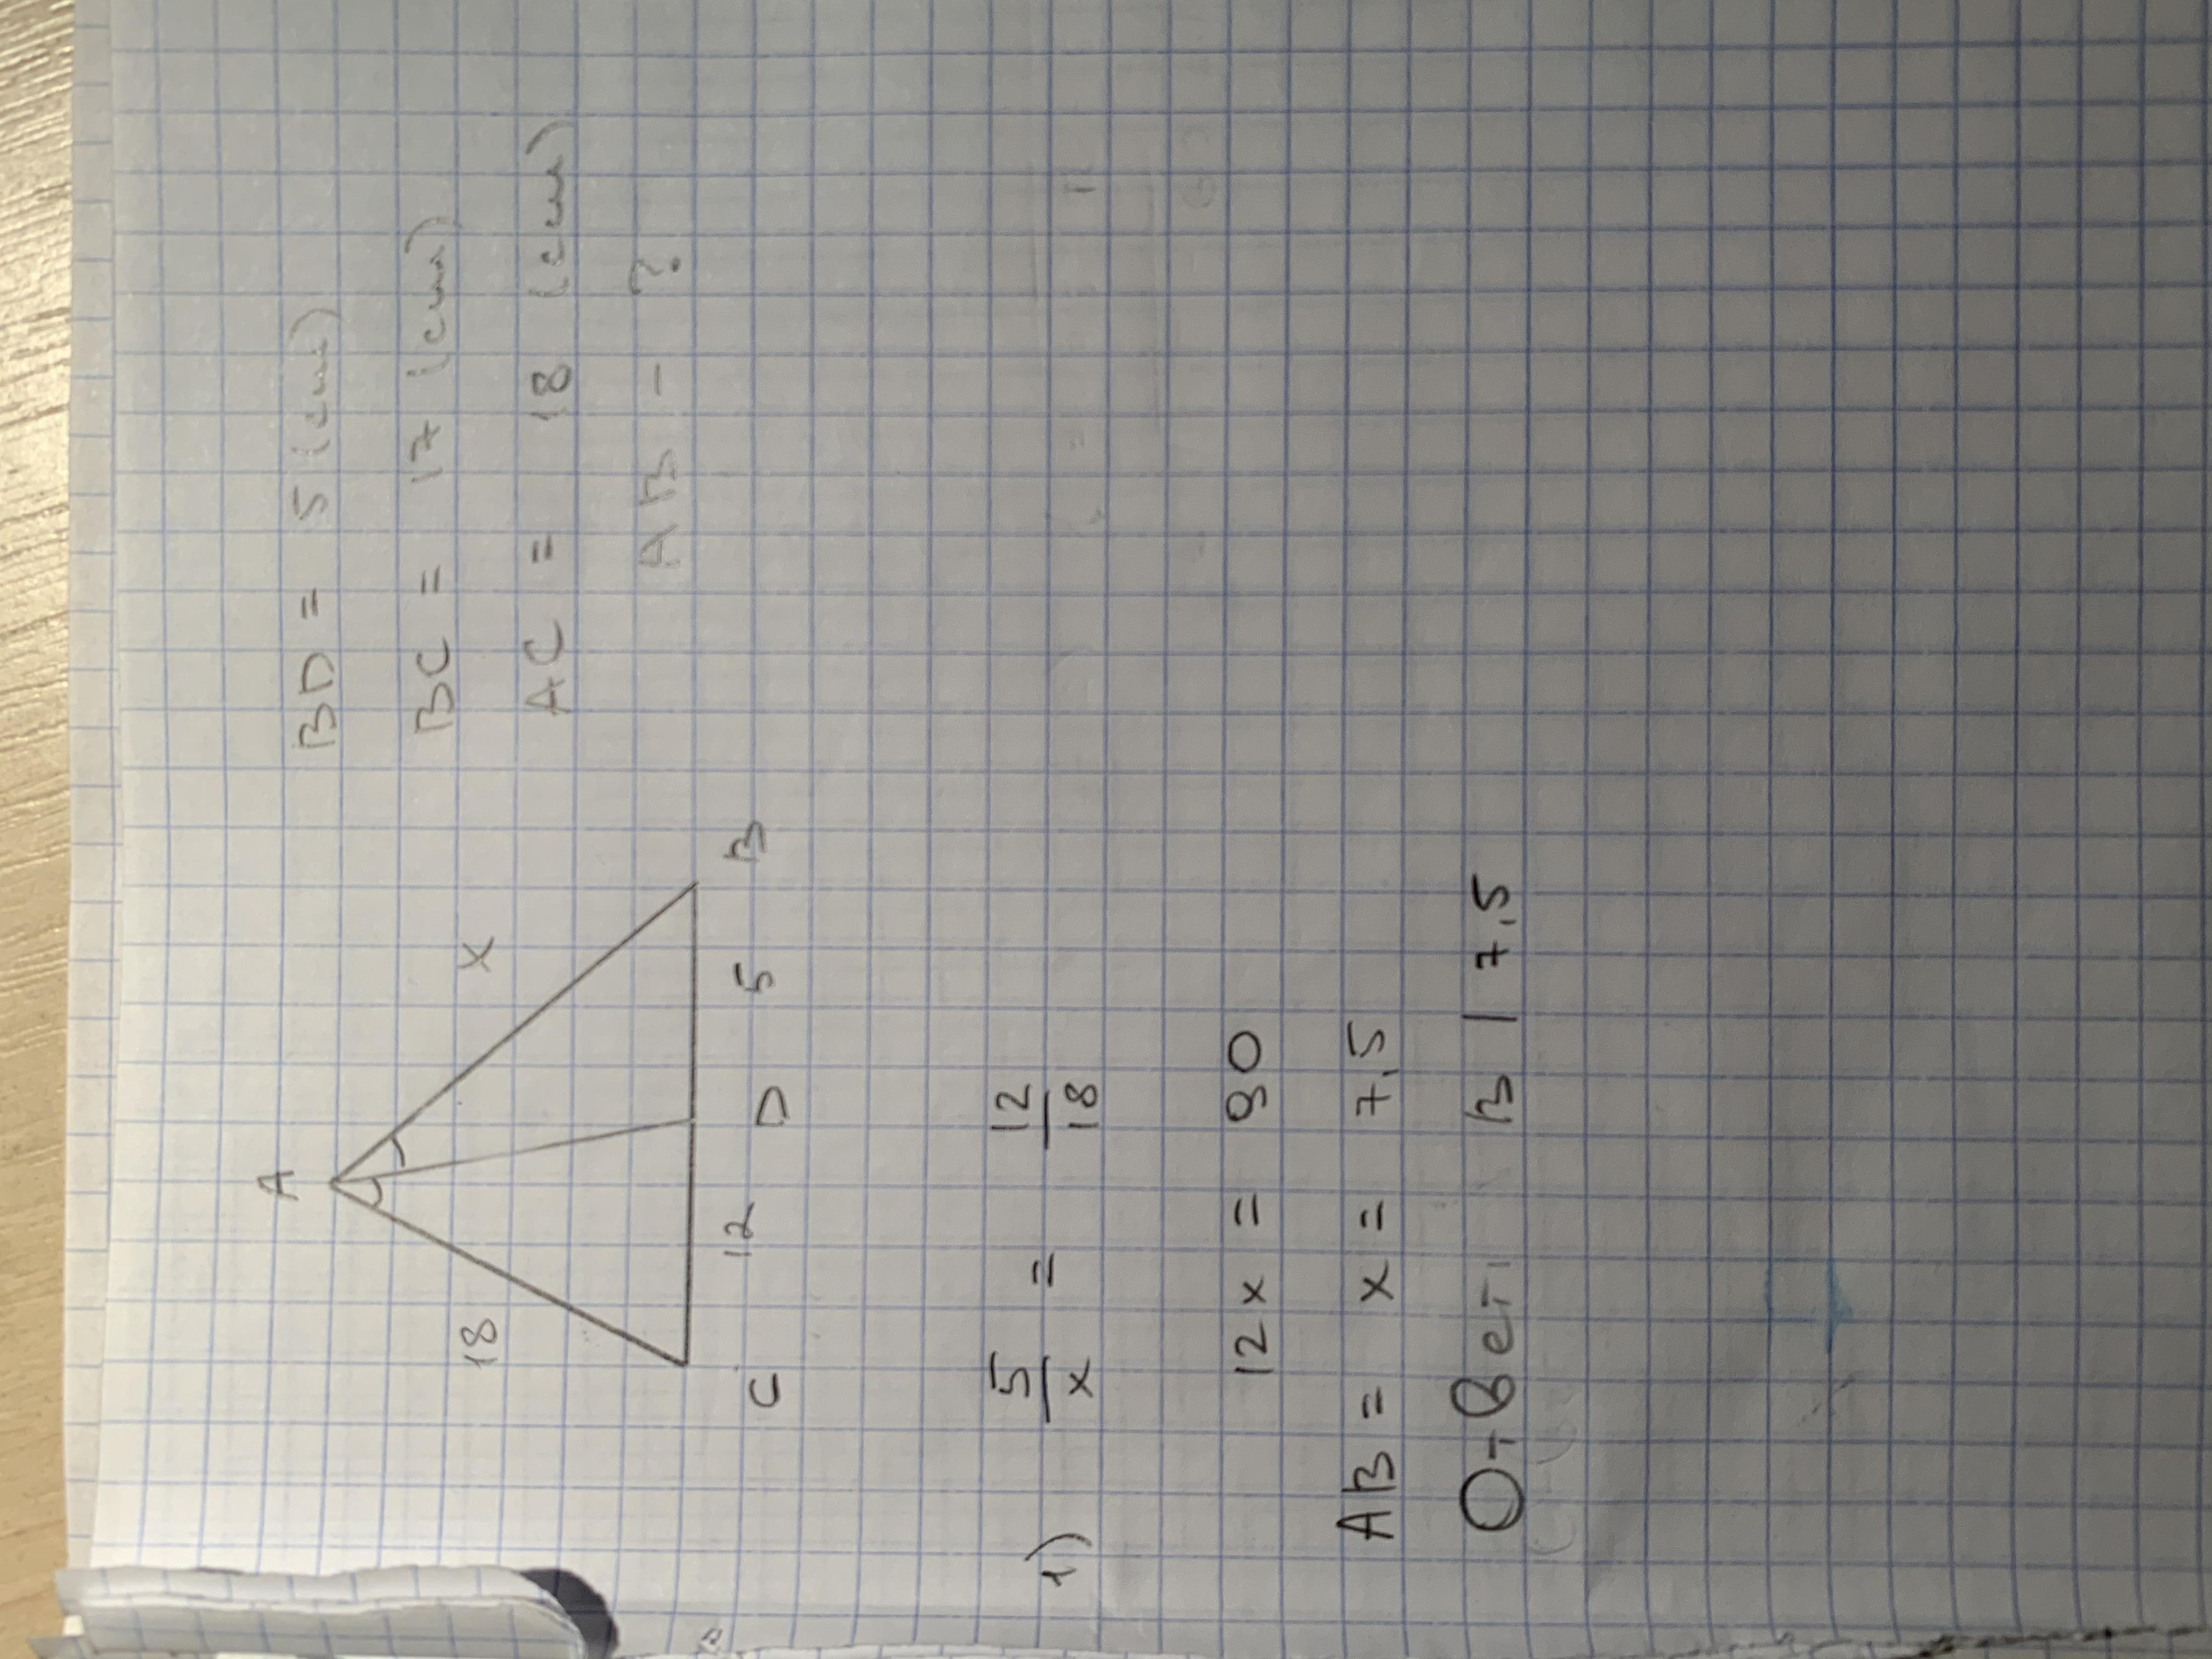 A
18
X
C
12
D
5
B
BD = 5 (см)
BC = 17 (см)
AC = 18 (см)
AB - ?
1) 5/x = 12/18
12x = 90
AB = x = 7,5
Ответ B | 7,5